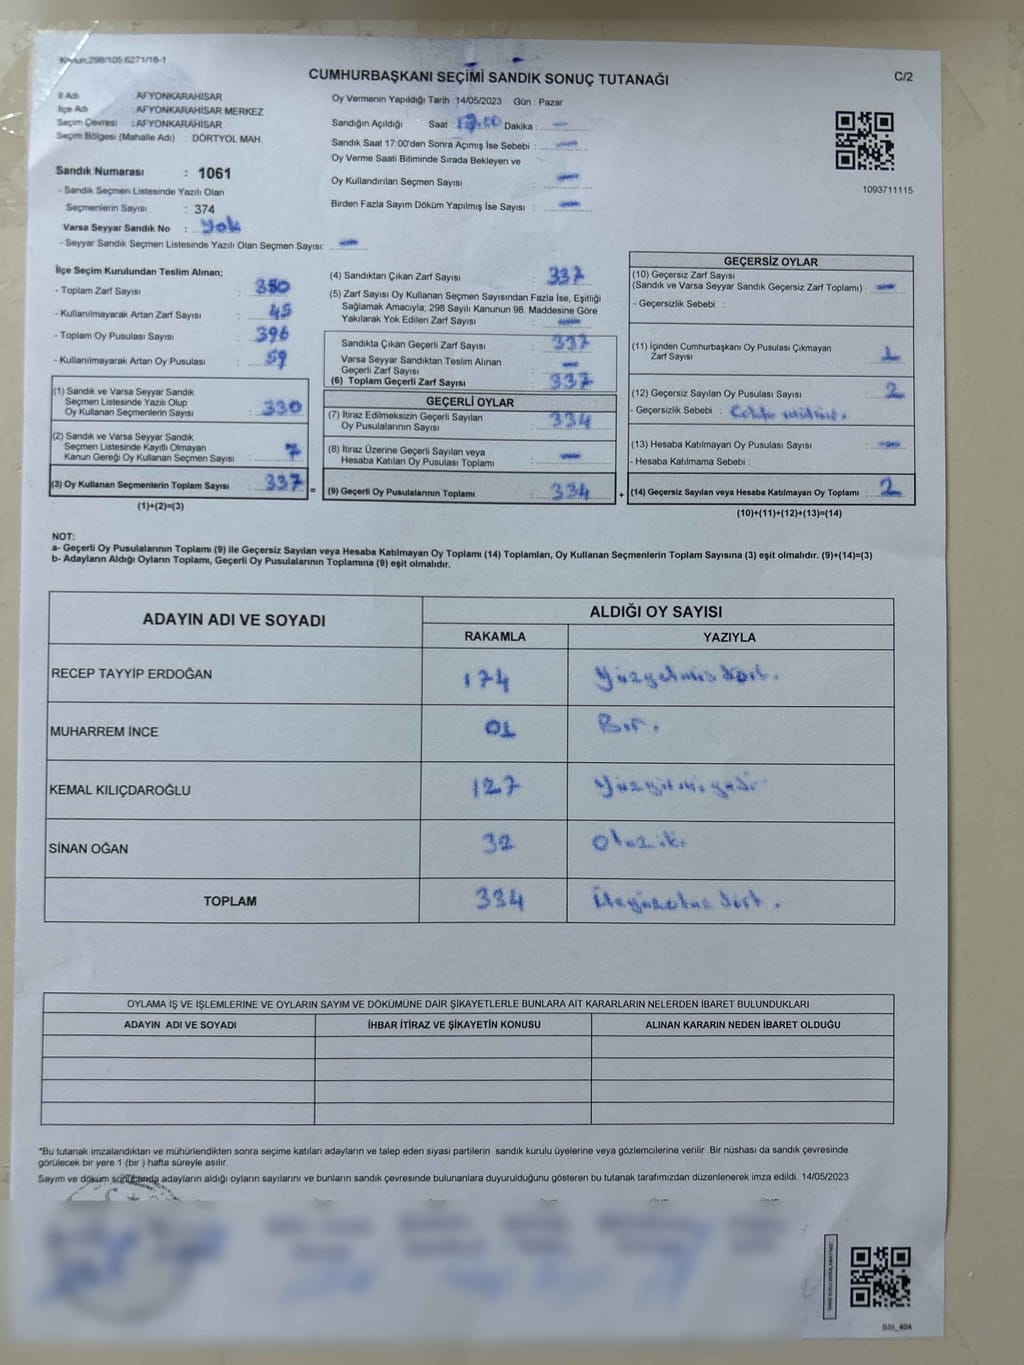 Kanun:298/105:6271/18-1
CUMHURBAŞKANI SEÇİMİ SANDIK SONUÇ TUTANAĞI
C/2
İl Adı : AFYONKARAHİSAR
İlçe Adı : AFYONKARAHİSAR MERKEZ
Seçim Çevresi : AFYONKARAHİSAR
Seçim Bölgesi (Mahalle Adı) : DÖRTYOL MAH.
Oy Vermenin Yapıldığı Tarih :14/05/2023 Gün : Pazar
Sandığın Açıldığı Saat Dakika : —
Sandık Saat 17:00'den Sonra Açımış İse Sebebi : —
Oy Verme Saati Bitiminde Sırada Bekleyen ve
Oy Kullandırılan Seçmen Sayısı : —
Birden Fazla Sayım Döküm Yapılmış İse Sayısı : —
1093711115
Sandık Numarası : 1061
- Sandık Seçmen Listesinde Yazılı Olan
Seçmenlerin Sayısı : 374
Varsa Seyyar Sandık No : Yok
- Seyyar Sandık Seçmen Listesinde Yazılı Olan Seçmen Sayısı: —
İlçe Seçim Kurulundan Teslim Alınan;
- Toplam Zarf Sayısı : 380
- Kullanılmayarak Artan Zarf Sayısı : 45
- Toplam Oy Pusulası Sayısı : 396
- Kullanılmayarak Artan Oy Pusulası : 59
(1) Sandık ve Varsa Seyyar Sandık
Seçmen Listesinde Yazılı Olup
Oy Kullanan Seçmenlerin Sayısı : 330
(2) Sandık ve Varsa Seyyar Sandık
Seçmen Listesinde Kayıtlı Olmayan
Kanun Gereği Oy Kullanan Seçmen Sayısı : 7
(3) Oy Kullanan Seçmenlerin Toplam Sayısı : 337 =
(1)+(2)=(3)
(4) Sandıktan Çıkan Zarf Sayısı : 337
(5) Zarf Sayısı Oy Kullanan Seçmen Sayısından Fazla İse, Eşitliği
Sağlamak Amacıyla, 298 Sayılı Kanunun 98. Maddesine Göre
Yakılarak Yok Edilen Zarf Sayısı : —
Sandıkta Çıkan Geçerli Zarf Sayısı : 337
Varsa Seyyar Sandıktan Teslim Alınan
Geçerli Zarf Sayısı : —
(6) Toplam Geçerli Zarf Sayısı : 337
GEÇERLİ OYLAR
(7) İtiraz Edilmeksizin Geçerli Sayılan
Oy Pusulalarının Sayısı : 334
(8) İtiraz Üzerine Geçerli Sayılan veya
Hesaba Katılan Oy Pusulası Toplamı : —
(9) Geçerli Oy Pusulalarının Toplamı : 334 +
GEÇERSİZ OYLAR
(10) Geçersiz Zarf Sayısı
(Sandık ve Varsa Seyyar Sandık Geçersiz Zarf Toplamı) : —
- Geçersizlik Sebebi :
(11) İçinden Cumhurbaşkanı Oy Pusulası Çıkmayan
Zarf Sayısı : 1
(12) Geçersiz Sayılan Oy Pusulası Sayısı : 2
- Geçersizlik Sebebi :
(13) Hesaba Katılmayan Oy Pusulası Sayısı : —
- Hesaba Katılmama Sebebi :
(14) Geçersiz Sayılan veya Hesaba Katılmayan Oy Toplamı : 2
(10)+(11)+(12)+(13)=(14)
NOT:
a- Geçerli Oy Pusulalarının Toplamı (9) ile Geçersiz Sayılan veya Hesaba Katılmayan Oy Toplamı (14) Toplamları, Oy Kullanan Seçmenlerin Toplam Sayısına (3) eşit olmalıdır. (9)+(14)=(3)
b- Adayların Aldığı Oyların Toplamı, Geçerli Oy Pusulalarının Toplamına (9) eşit olmalıdır.
ADAYIN ADI VE SOYADI
ALDIĞI OY SAYISI
RAKAMLA YAZIYLA
RECEP TAYYİP ERDOĞAN 174 Yüzyetmiş dört.
MUHARREM İNCE 01 Bir.
KEMAL KILIÇDAROĞLU 127 Yüzyirmi yedi
SİNAN OĞAN 32 Otuz iki
TOPLAM 334 Üçyüzotuz dört.
OYLAMA İŞ VE İŞLEMLERİNE VE OYLARIN SAYIM VE DÖKÜMÜNE DAİR ŞİKAYETLERLE BUNLARA AİT KARARLARIN NELERDEN İBARET BULUNDUKLARI
ADAYIN ADI VE SOYADI İHBAR İTİRAZ VE ŞİKAYETİN KONUSU ALINAN KARARIN NEDEN İBARET OLDUĞU
"Bu tutanak imzalandıktan ve mühürlendikten sonra seçime katılan adayların ve talep eden siyasi partilerin sandık kurulu üyelerine veya gözlemcilerine verilir. Bir nüshası da sandık çevresinde
görülecek bir yere 1 (bir ) hafta süreyle asılır.
Sayım ve döküm sonucunda adayların aldığı oyların sayılarını ve bunların sandık çevresinde bulunanlara duyurulduğunu gösteren bu tutanak tarafımızdan düzenlenerek imza edildi. 14/05/2023
SSI_404